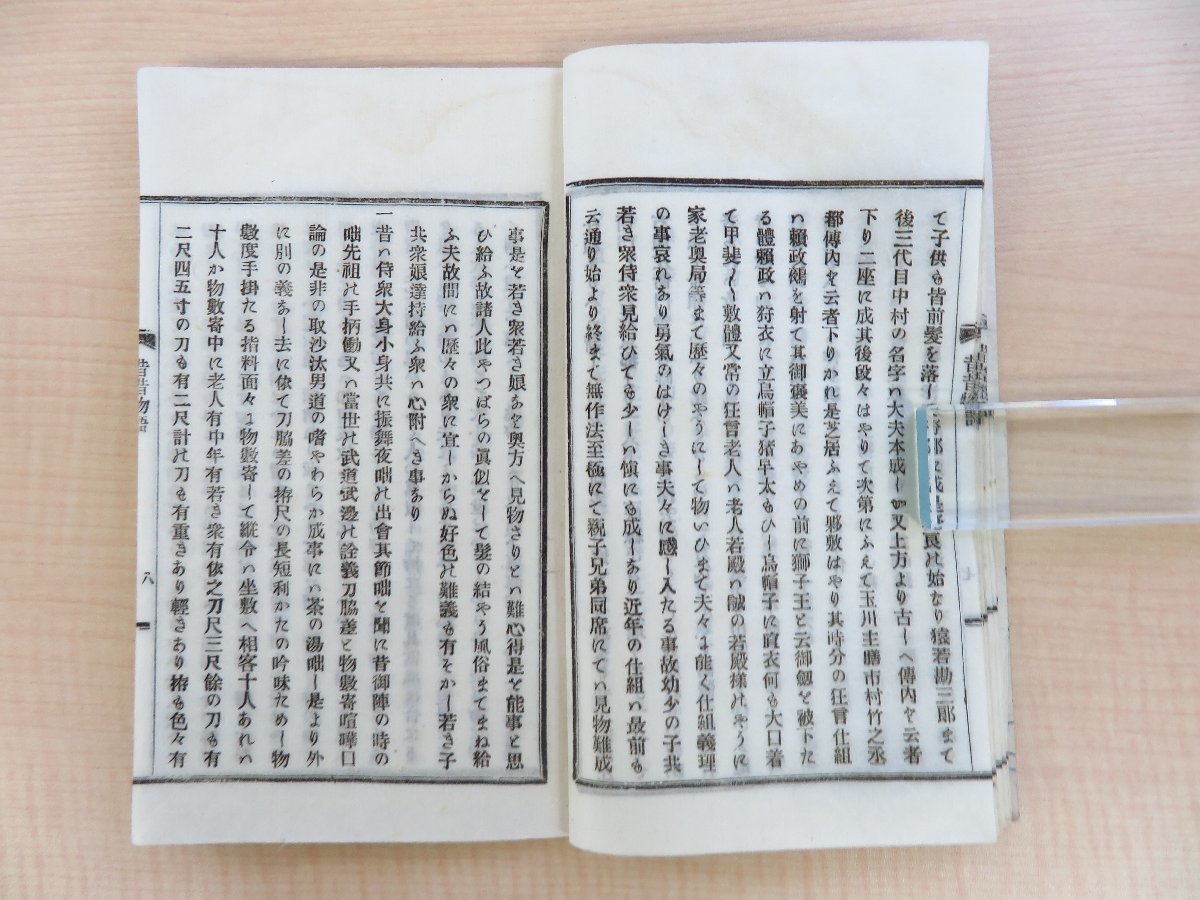 て子供も皆前髪を落し
良の始なり猿若勘三郎まて
後三代目中村の名字ハ大夫本成しか又上方より古しへ傳内を云者
下り二座に成其後段々はやりて次第にふえて玉川主膳市村竹之丞
都傳内を云者下りかれ是芝居ふえて邪敷はやり其時分の狂言仕組
ハ頼政鵺を射て其御褒美にあやめの前に獅子王と云御劔を被下た
る體頼政ハ狩衣に立烏帽子猪早太もひし烏帽子に直衣何も大口着
て甲斐〳〵敷體又常の狂言老人ハ老人若殿ハ誠の若殿様のやうに
家老奥局等まて歴々のやうにして物いひまて夫々に能く仕組義理
の事哀れあり勇氣のはけしき事夫々に感し入たる事故幼少の子共
若き衆侍衆見給ひても少しハ慎にも成しあり近年の仕組ハ最前も
云通り始より終まて無作法至極にて親子兄弟同席にてハ見物難成
昔昔物語
事是を若き衆若き娘あを奥方へ見物さりとハ難心得是を能事と思
ひ給ふ故諸人此やつばらの眞似をして髪の結やう風俗まてまね給
ふ夫故間にハ歴々の衆に宜しからぬ好色の難義も有そかし若き子
共衆娘達持給ふ衆ハ心附へき事あり
一昔ハ侍衆大身小身共に振舞夜咄の出會其節咄を聞に昔御陣の時の
咄先祖の手柄働又ハ當世の武道武邊の詮義刀脇差と物數寄喧嘩口
論の是非の取沙汰男道の嗜やわらか成事にハ茶の湯咄し是より外
に別の義あし去に依て刀脇差の拵尺の長短利かたの吟味ためし物
數度手掛たる指料面々に物數寄して縦令ハ坐敷へ相客十人あれハ
十人か物數寄中に老人有中年有若き衆有依之刀尺三尺餘の刀も有
二尺四五寸の刀も有二尺計の刀も有重きあり輕きあり拵も色々有
昔昔物語
八